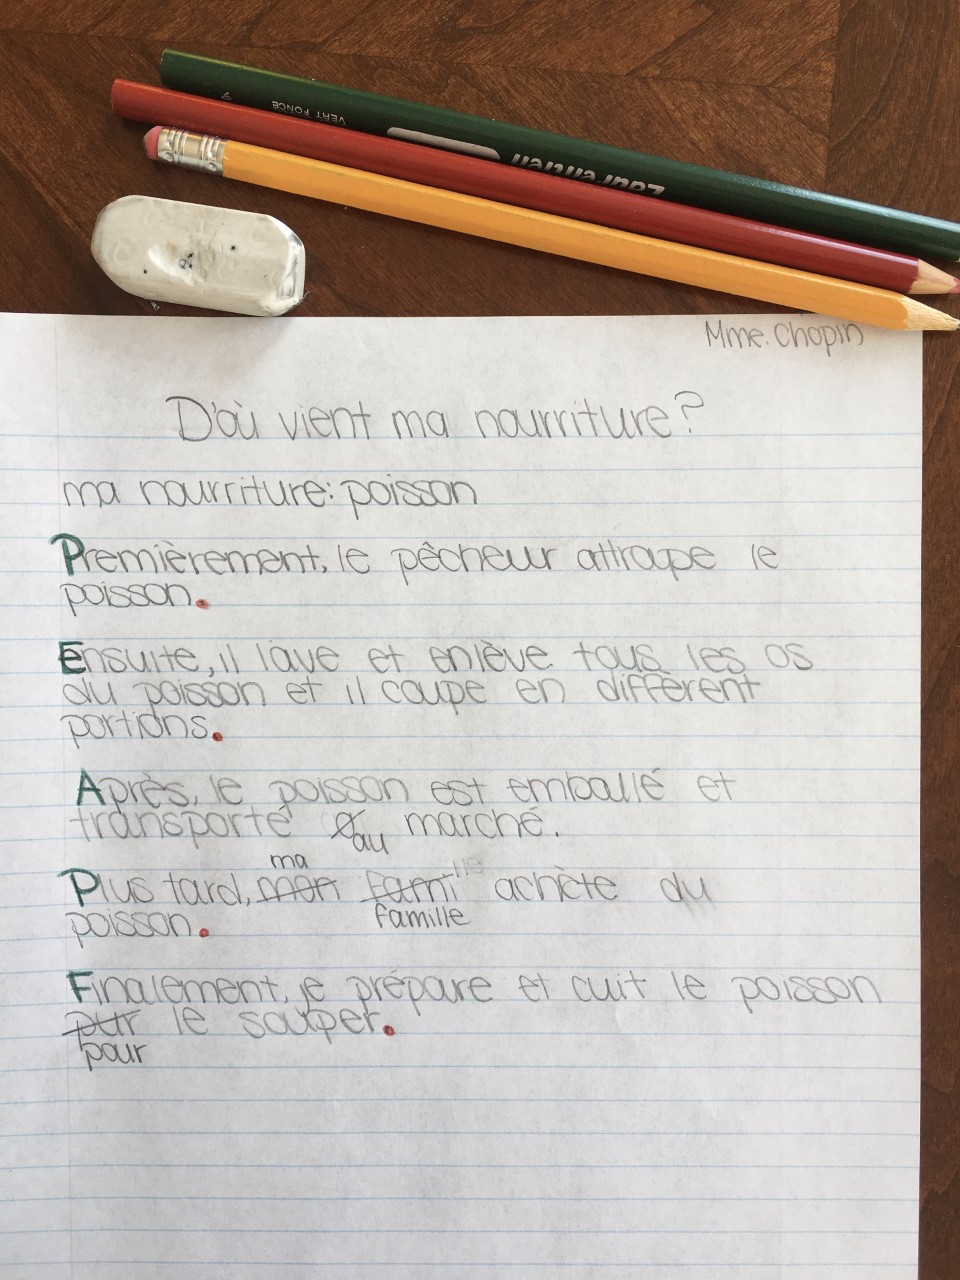 VERT FONCÉ
Laurentien
Mme. Chopin
D'où vient ma nourriture?
ma nourriture: poisson
Premièrement, le pêcheur attrape le
poisson.
Ensuite, il lave et enlève tous les os
du poisson et il coupe en différent
portions.
Après, le poisson est emballé et
transporté au marché.
ma
Plus tard, mon fami achète du
famille
poisson.
Finalement, je prépare et cuit le poisson
pur le souper.
pour